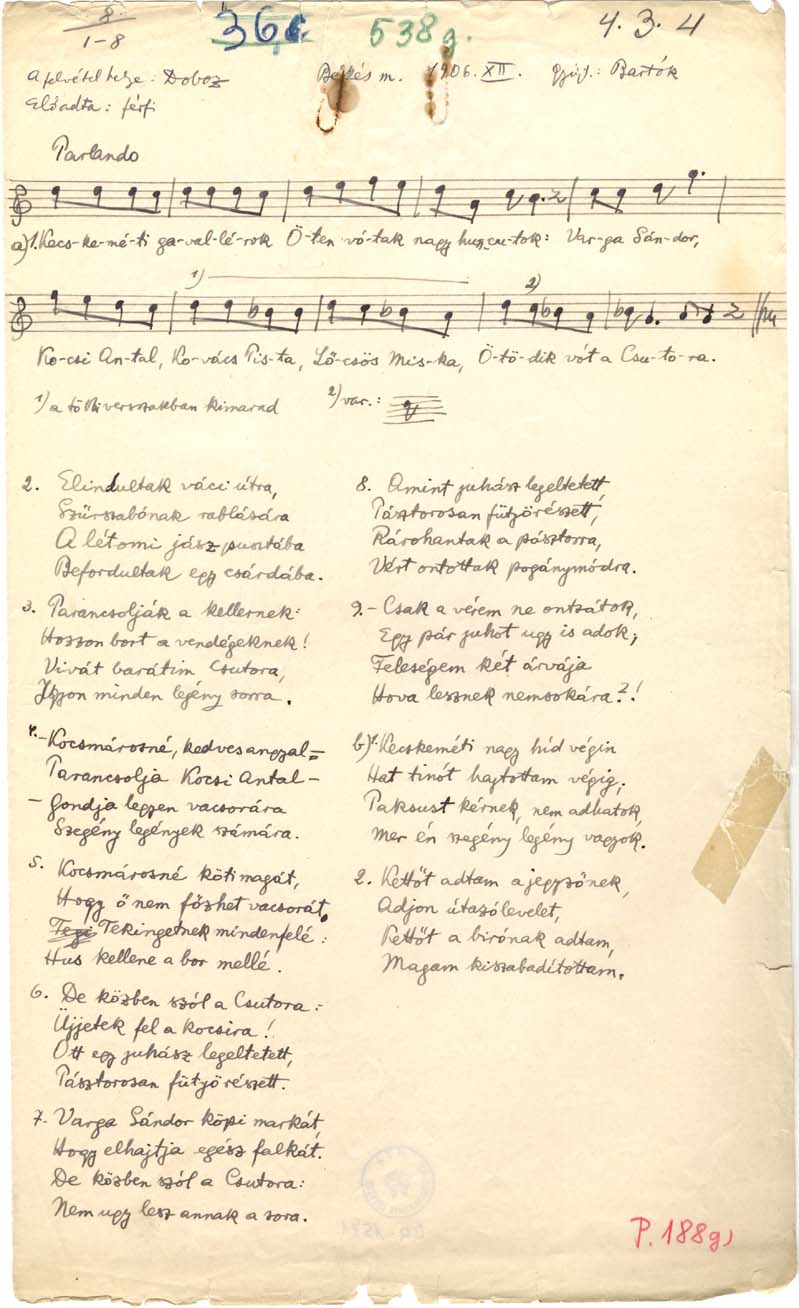 8
1-8
36c
538g.
4. 3. 4
A felvétel helye: Doboz Békés m. 1906. XII. Gyűjt.: Bartók
Előadta: férfi
Parlando
a) 1. Kecs-ke-mé-ti ga-val-lé-rok Ö-ten vó-tak nagy hun-cu-tok: Var-ga Sán-dor,
1) 2)
Ko-csi An-tal, Ko-vács Pis-ta, Lő-csös Mis-ka, Ö-tö-dik vót a Csu-to-ra.
1) a többi versszakban kimarad 2) var.:
2. Elindultak váci útra,
Szűrszabónak rablására
A létomi jász pusztába
Befordultak egy csárdába.
3. Parancsolják a kellernek:
Hozzon bort a vendégeknek!
Vivát barátim Csutora,
Igyon minden legény sorra.
4. - Kocsmárosné, kedves angyal -
Parancsolja Kocsi Antal -
- Gondja legyen vacsorára
Szegény legények számára.
5. Kocsmárosné köti magát,
Hogy ő nem főzhet vacsorát,
Tekingetnek mindenfelé:
Hús kellene a bor mellé.
6. De közben szól a Csutora:
Üjjetek fel a kocsira!
Ott egy juhász legeltetett,
Pásztorosan fütyörészett.
7. Varga Sándor köpi markát,
Hogy elhajtja egész falkát.
De közben szól a Csutora:
Nem ugy lesz annak a sora.
8. Amint juhász legeltetett,
Pásztorosan fütyörészett,
Rárohantak a pásztorra,
Vért ontottak pogánymódra.
9. - Csak a vérem ne ontsátok,
Egy pár juhot ugy is adok;
Feleségem két árvája
Hova lesznek nemsokára?!
b) 1. Kecskeméti nagy híd végin
Hat tinót hajtottam végig;
Paksust kérnek, nem adhatok,
Mer én szegény legény vagyok.
2. Kettőt adtam a jegyzőnek,
Adjon útazólevelet,
Kettőt a birónak adtam,
Magam kiszabadítottam.
P. 188g)